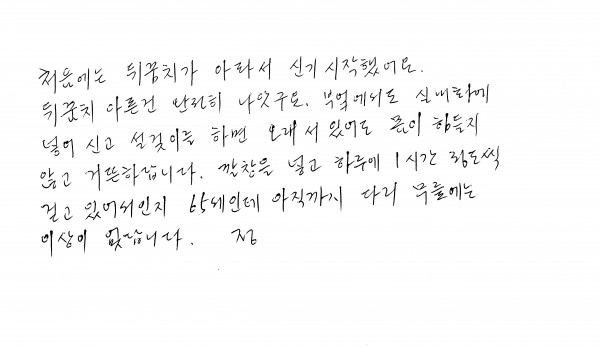 처음에는 뒤꿈치가 아파서 신기 시작했어요.
뒤꿈치 아픈건 완전히 나았구요. 부엌에서도 실내화에
넣어 신고 설겆이를 하면 오래 서 있어도 몸이 힘들지
않고 거뜬하답니다. 깔창을 넣고 하루에 1시간 정도씩
걷고 있어서인지 65세인데 아직까지 다리 무릎에는
이상이 없답니다. 정